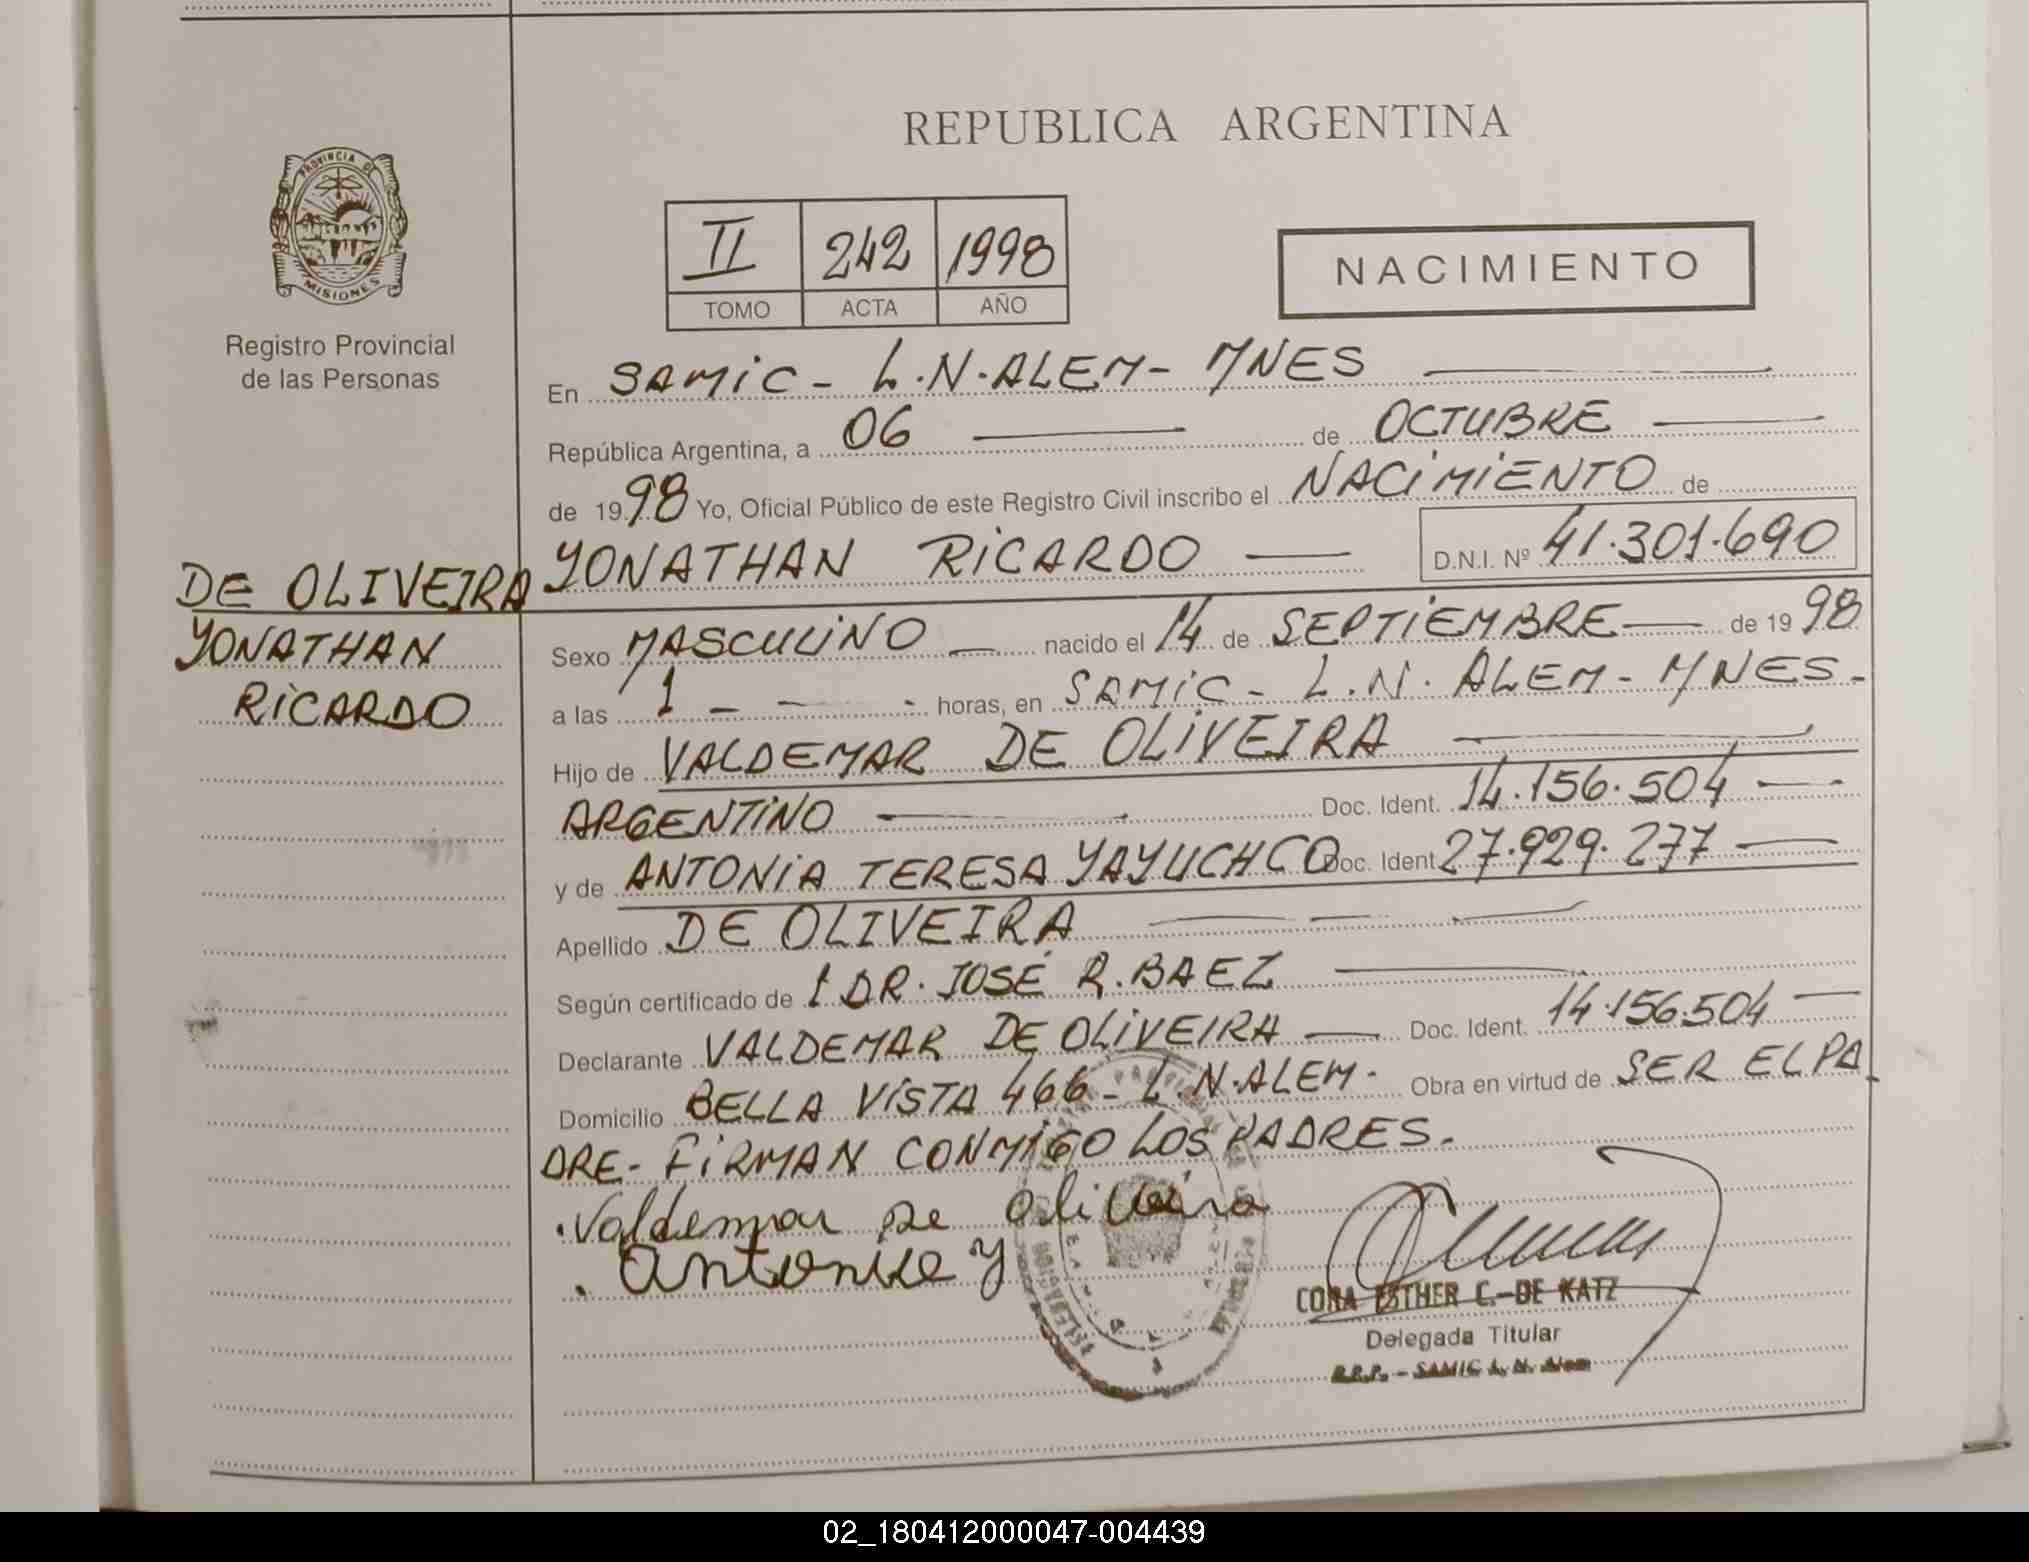 REPUBLICA ARGENTINA
PROVINCIA DE MISIONES
Registro Provincial
de las Personas
II 242 1998
TOMO ACTA AÑO
NACIMIENTO
En SAMIC - L.N. ALEM - MNES
República Argentina, a 06 de OCTUBRE
de 1998 Yo, Oficial Público de este Registro Civil inscribo el NACIMIENTO de
YONATHAN RICARDO D.N.I. Nº 41.301.690
DE OLIVEIRA
YONATHAN
RICARDO
Sexo MASCULINO nacido el 14 de SEPTIEMBRE de 1998
a las 1 horas, en SAMIC - L.N. ALEM - MNES -
Hijo de VALDEMAR DE OLIVEIRA
ARGENTINO Doc. Ident. 14.156.504
y de ANTONIA TERESA YAYUCHCO Doc. Ident 27.929.277
Apellido DE OLIVEIRA
Según certificado de 1 DR. JOSÉ R. BAEZ
Declarante VALDEMAR DE OLIVEIRA Doc. Ident. 14.156.504
Domicilio BELLA VISTA 466 - L.N. ALEM - Obra en virtud de SER EL PA
DRE - FIRMAN CONMIGO LOS PADRES.
Valdemar De Oliveira
Antonia Y
CORA ESTHER C. DE KATZ
Delegada Titular
R.P.P. - SAMIC L. N. Alem
02_180412000047-004439